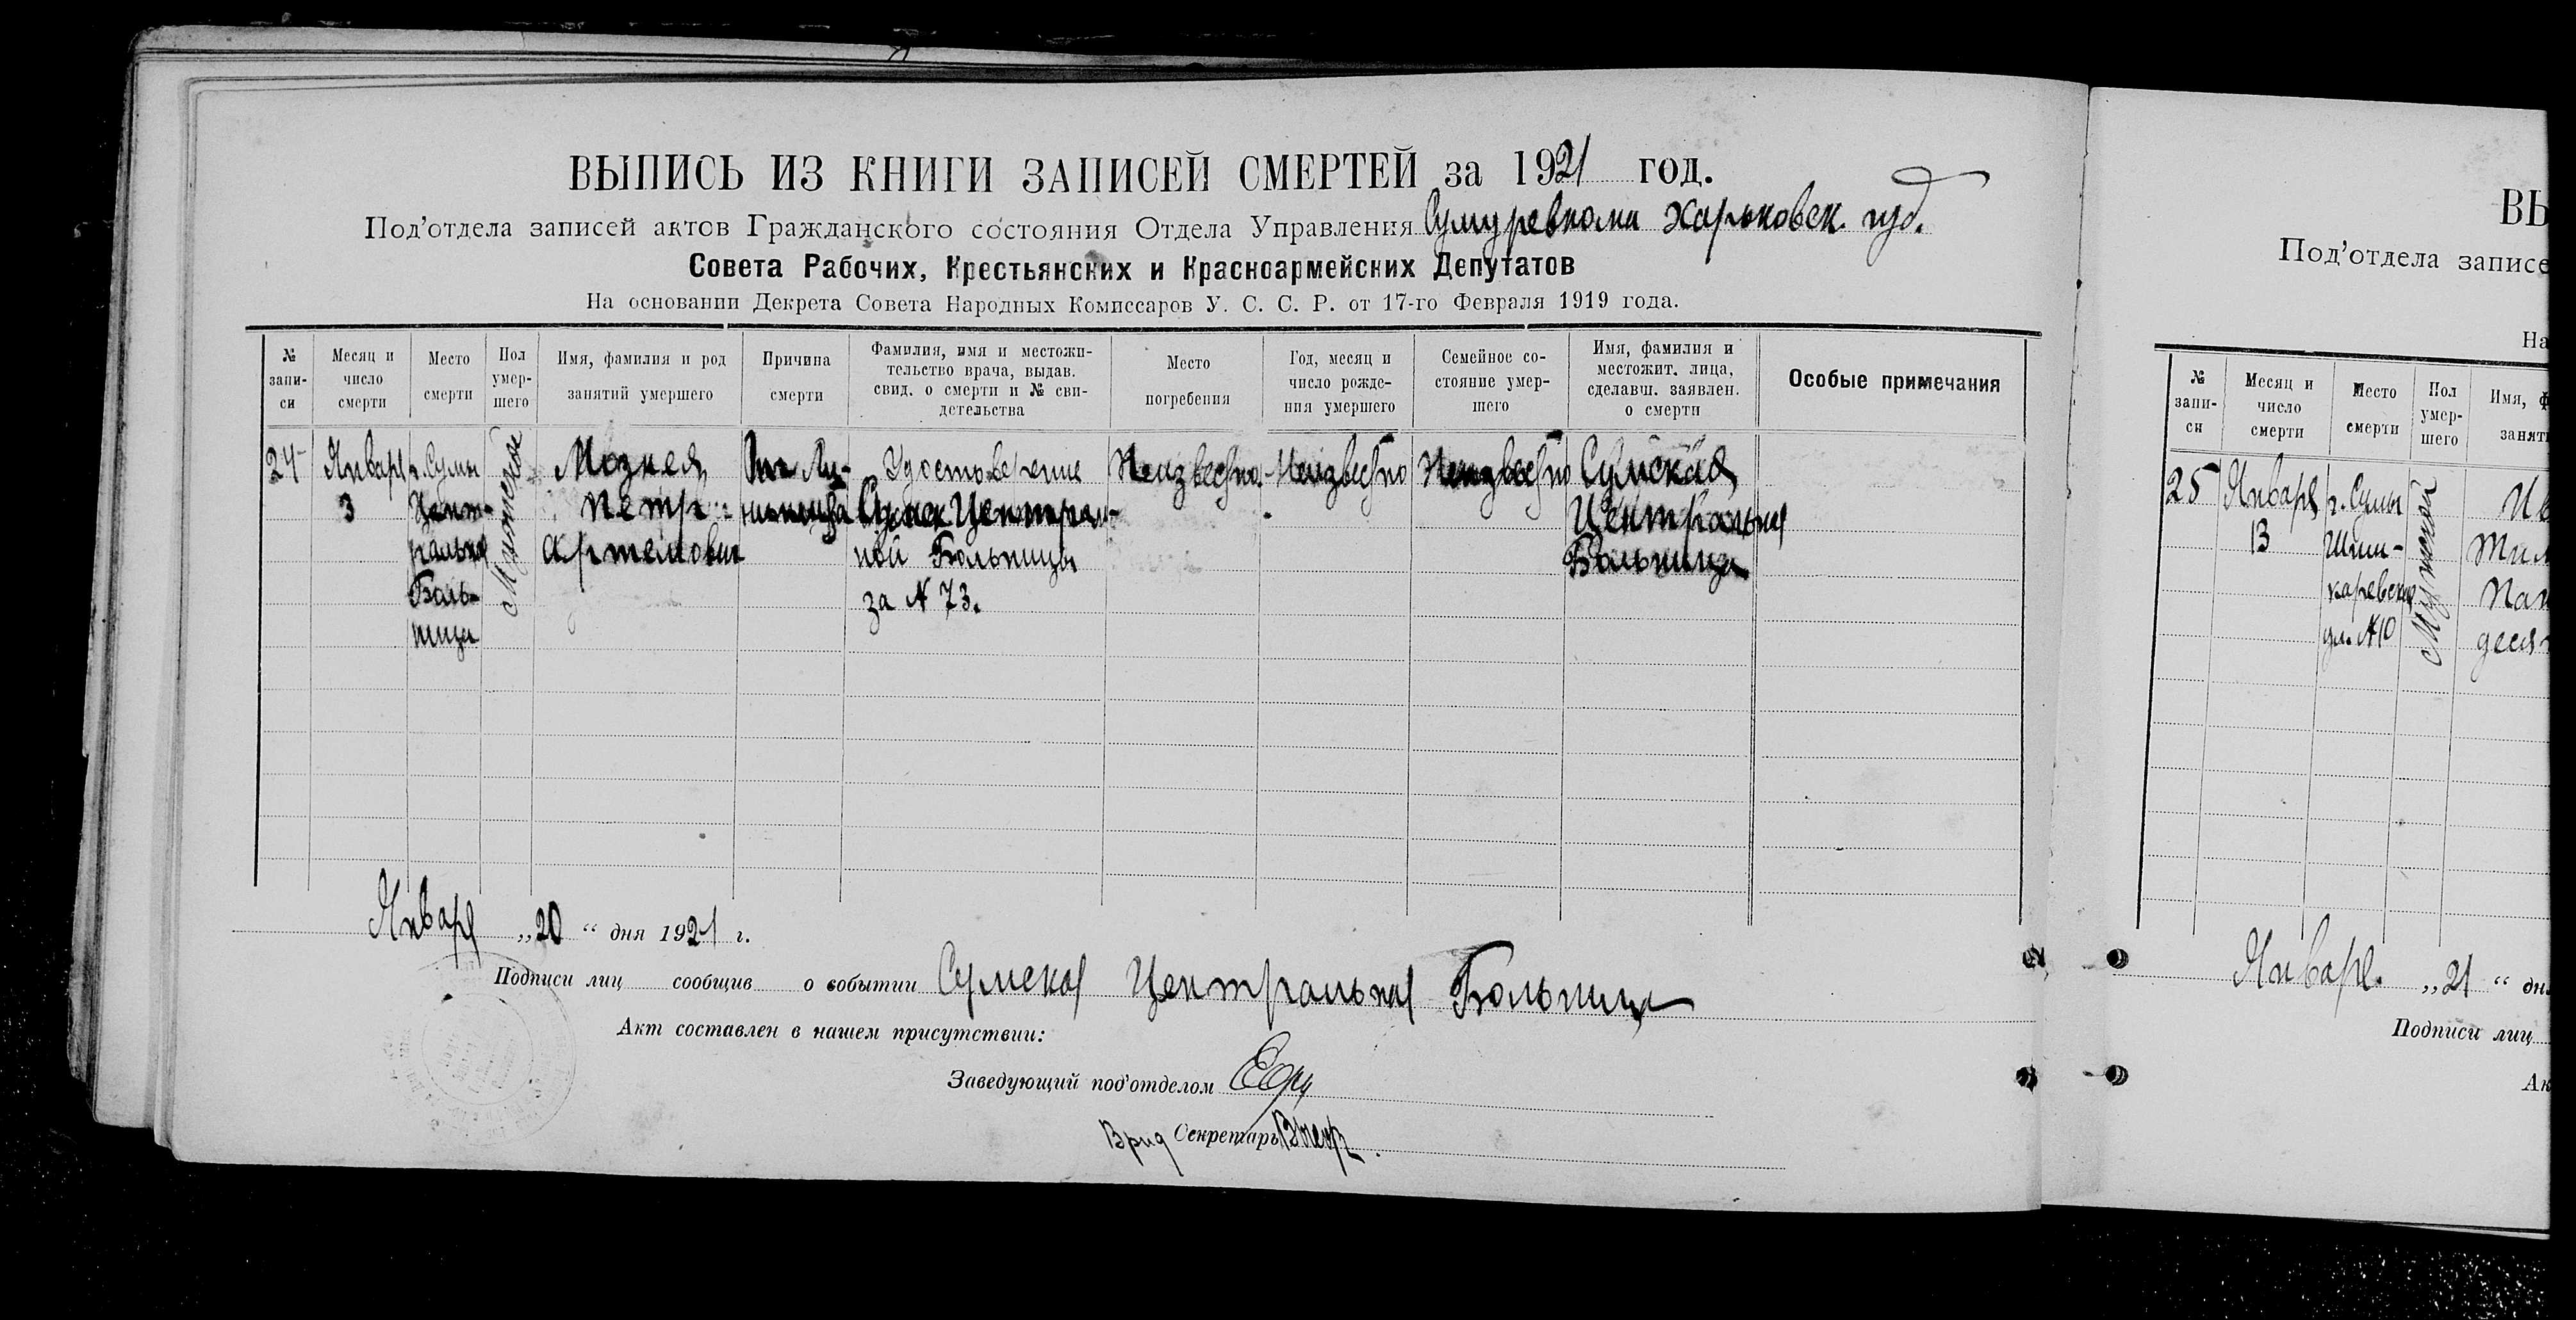 ВЫПИСЬ ИЗ КНИГИ ЗАПИСЕЙ СМЕРТЕЙ за 1921 год.
Под'отдела записей актов Гражданского состояния Отдела Управления Сумуревкома Харьковск. губ.
Совета Рабочих, Крестьянских и Красноармейских Депутатов
На основании Декрета Совета Народных Комиссаров У. С. С. Р. от 17-го Февраля 1919 года.
№ запи-си
Месяц и число смерти
Место смерти
Пол умер-шего
Имя, фамилия и род занятий умершего
Причина смерти
Фамилия, имя и местожи-тельство врача, выдав. свид. о смерти и № сви-детельства
Место погребения
Год, месяц и число рожде-ния умершего
Семейное со-стояние умер-шего
Имя, фамилия и местожит. лица, сделавш. заявлен. о смерти
Особые примечания
24 Января г. Сумы Мужской Удостоверение Неизвестно Неизвестно Неизвестно Сумская
3 Цент- Петр Централь- Центральная
ральная Артемович ной Больницы Больница
Боль- за № 73.
ница
Января „20“ дня 1921 г.
Подписи лиц сообщив о событии Сумская Центральная Больница
Акт составлен в нашем присутствии:
Заведующий под'отделом
Врид Секретарь
ВЫ
Под'отдела записе
На
№ запи-си
Месяц и число смерти
Место смерти
Пол умер-шего
Имя, ф
занят
25 Января г. Сумы Мужской
13
ул. №10
Января. „21“ дн
Подписи лиц
Ак